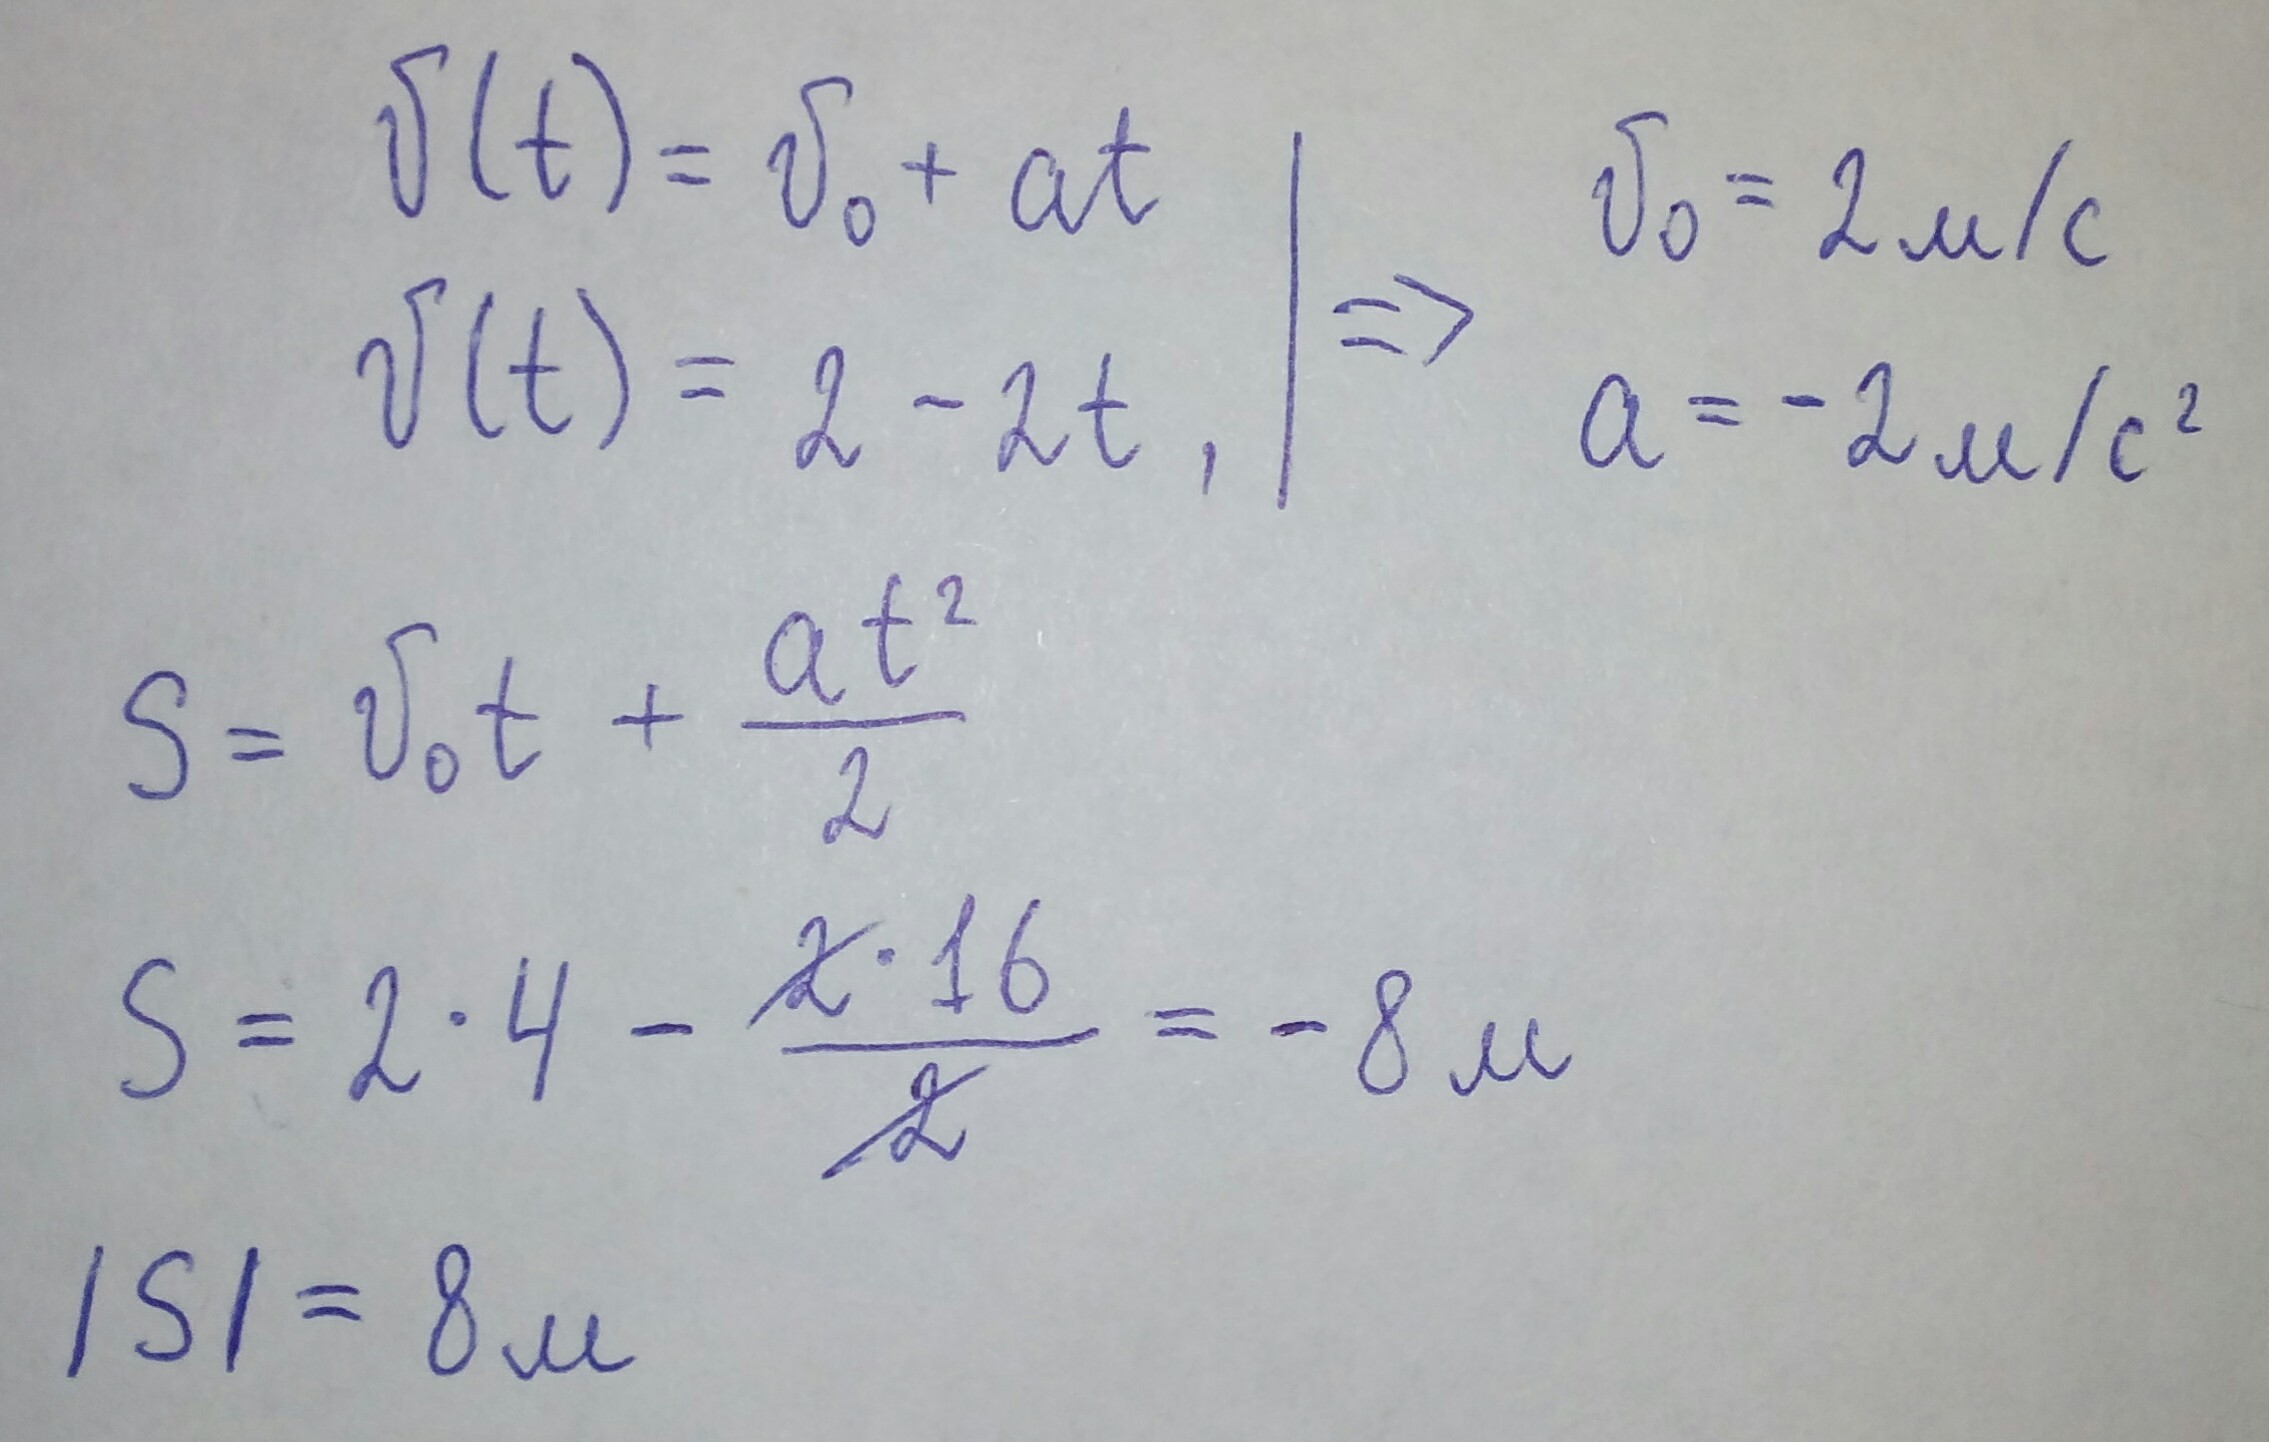 υ(t) = υ₀ + at
υ(t) = 2 - 2t, | => υ₀ = 2 м/с
a = -2 м/с²
S = υ₀t + at²/2
S = 2·4 - 2·16/2 = -8 м
|S| = 8 м